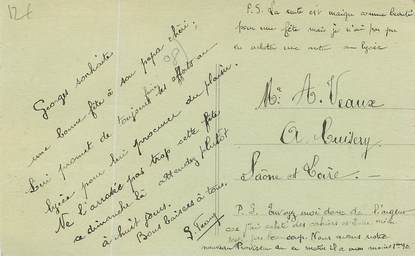 12f
Georges souhaite
une bonne fête à son papa chéri,
lui promet de toujours faire des efforts au
lycée pour lui procurer du plaisir.
Ne l'arrosez pas trop cette fête
ce dimanche là attendez plutôt
à huit jours.
Bons baisers à tous.
P.S. La carte est maigre comme beauté
pour une fête mais je n'ai pas pu
en acheter une autre au lycée
Mr A. Veaux
à Cuisery
Saône et Loire
P.S. Envoyez moi donc de l'argent
car j'ai acheté des cahiers et
coup. Nous avons notre
nouveau Proviseur